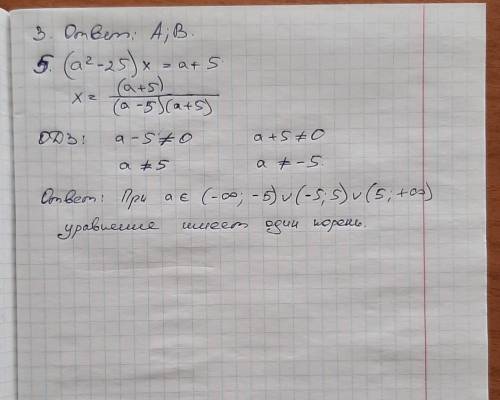 3. Ответ: А; В.
5. (a² - 25) x = a + 5
x = (a+5) / (a-5)(a+5)
ОДЗ: a - 5 ≠ 0 a + 5 ≠ 0
a ≠ 5 a ≠ -5
Ответ: При a ∈ (-∞; -5) ∪ (-5; 5) ∪ (5; +∞)
уравнение имеет один корень.